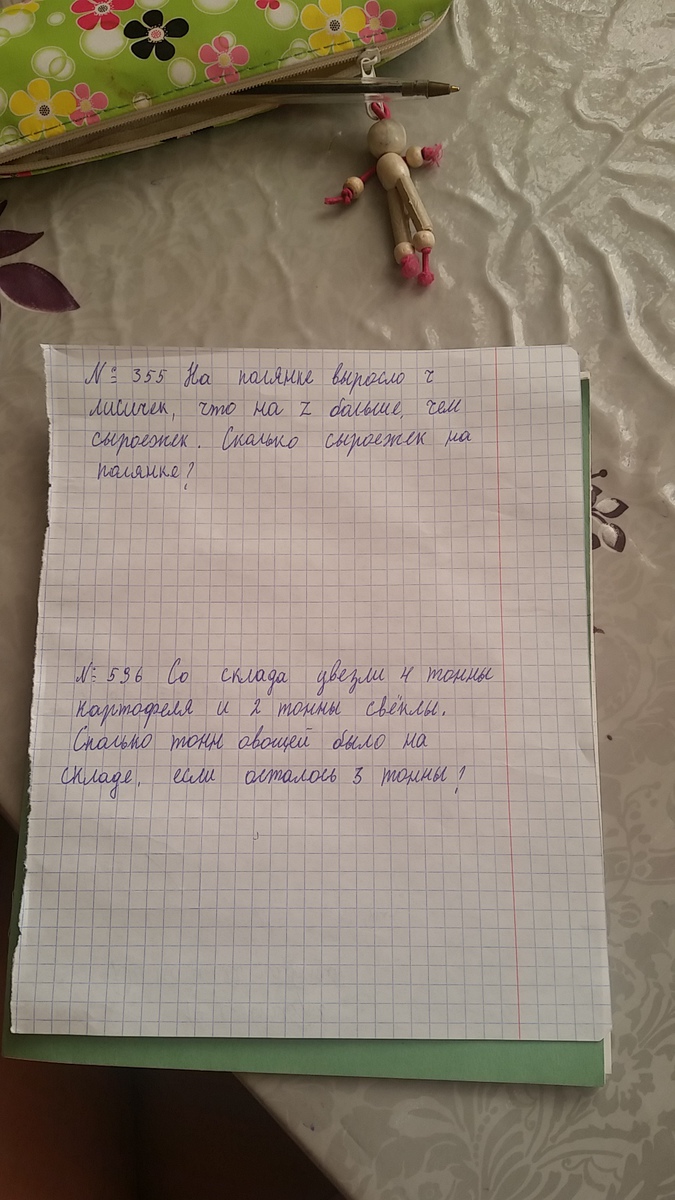 № 355 На полянке выросло r
лисичек, что на z больше, чем
сыроежек. Сколько сыроежек на
полянке?
№ 596 Со склада увезли 4 тонны
картофеля и 2 тонны свёклы.
Сколько тонн овощей было на
складе, если осталось 3 тонны?